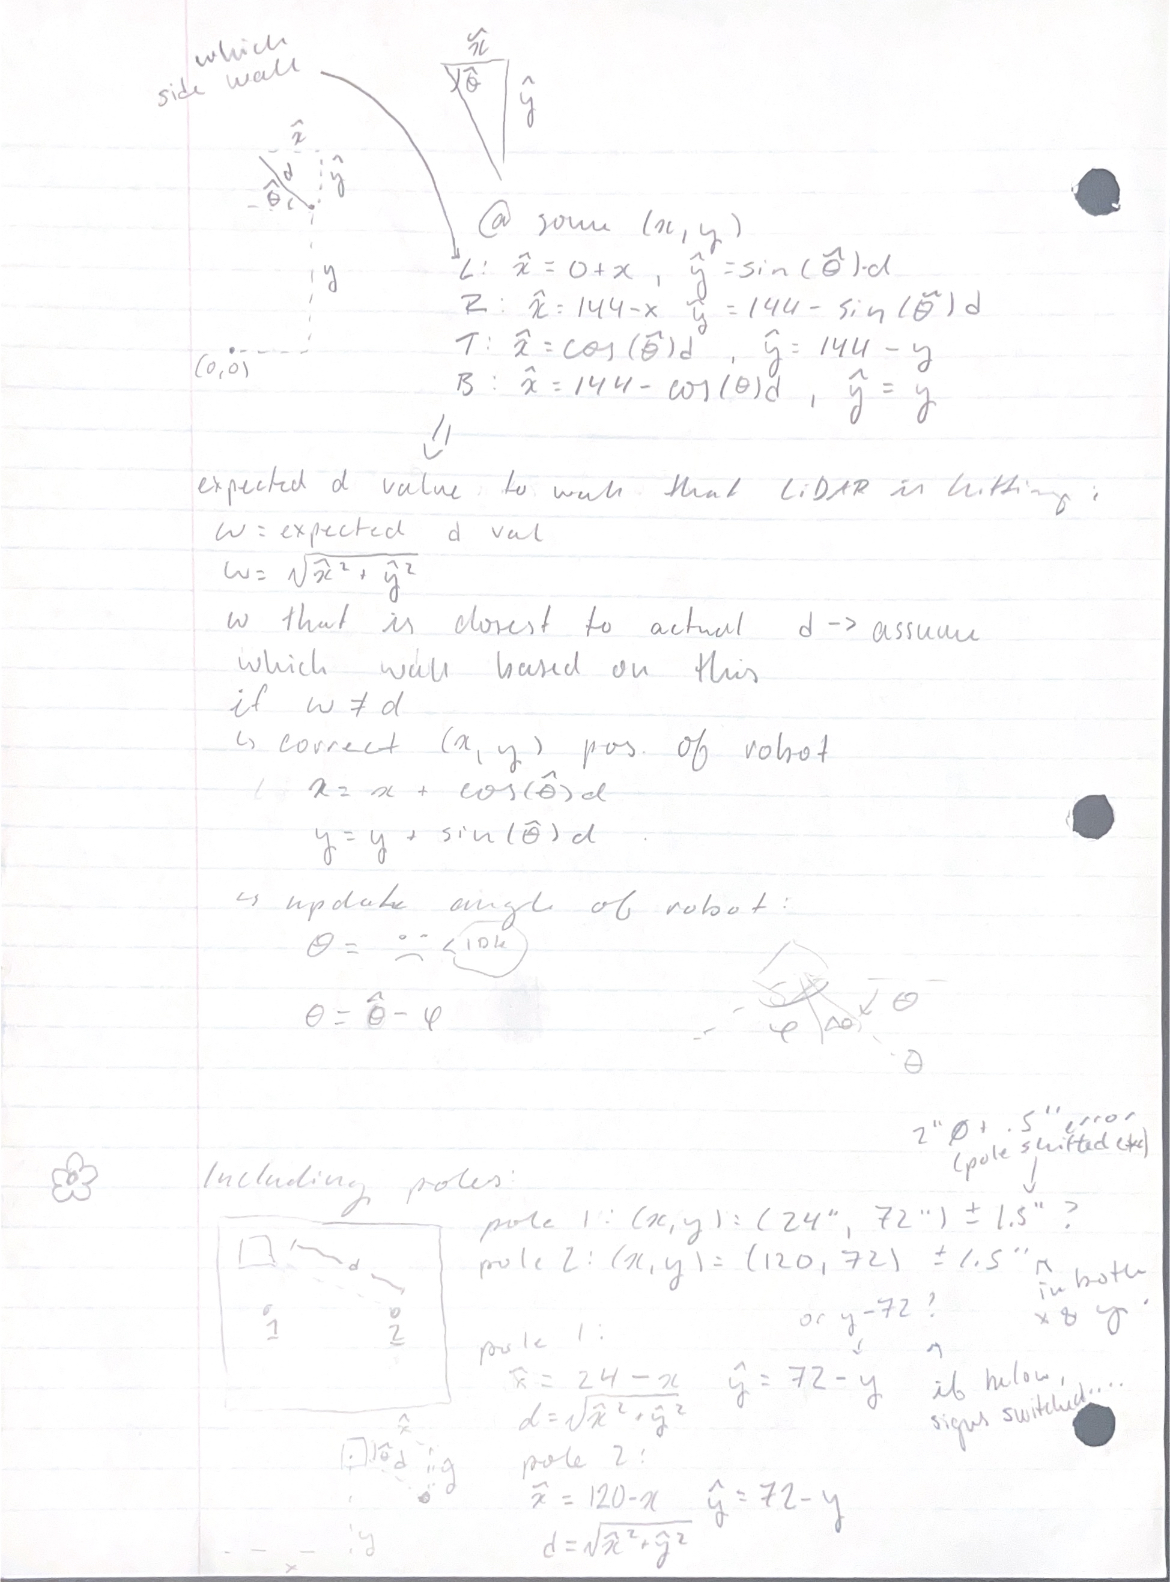 which
side wall
x̂
θ̂
ŷ
x̂
d
ŷ
θ̂
y
(0,0)
@ some (x, y)
L: x̂ = 0+x , ŷ = sin(θ̂)·d
R: x̂ = 144-x ŷ = 144 - sin(θ̂)d
T: x̂ = cos(θ̂)d , ŷ = 144 - y
B: x̂ = 144 - cos(θ)d , ŷ = y
⇓
expected d value to wall that LiDAR is hitting:
w = expected d val
w = √x̂² + ŷ²
w that is closest to actual d -> assume
which wall based on this
if w ≠ d
↳ correct (x, y) pos. of robot
x = x + cos(θ̂)d
y = y + sin(θ̂)d
↳ update angle of robot:
θ = :( < idk
θ = θ̂ - φ
θ
φ
Δθ
θ
2" Ø + .5" error
(pole shifted etc)
Including poles:
pole 1: (x,y): (24", 72") ± 1.5" ?
pole 2: (x,y) = (120, 72) ± 1.5"
in both
x & y.
d
1
2
or y-72?
pole 1:
x̂ = 24 - x ŷ = 72 - y
if below,
signs switched....
d = √x̂² + ŷ²
x̂
θ̂
d
ŷ
y
x
pole 2:
x̂ = 120-x ŷ = 72-y
d = √x̂² + ŷ²